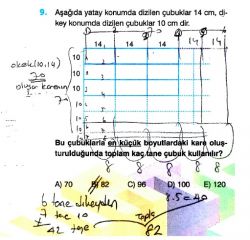 9. Aşağıda yatay konumda dizilen çubuklar 14 cm, di-
key konumda dizilen çubuklar 10 cm dir.
14 14 14 14 14
10
10
10
10
10
okek(10,14)
70
Bu çubuklarla en küçük boyutlardaki kare oluş-
turulduğunda toplam kaç tane çubuk kullanılır?
8 8 8 8 8
A) 70 B) 82 C) 96 D) 100 E) 120
6 tane dikeyden
8.5=40
7 tane 10
42 tane
82